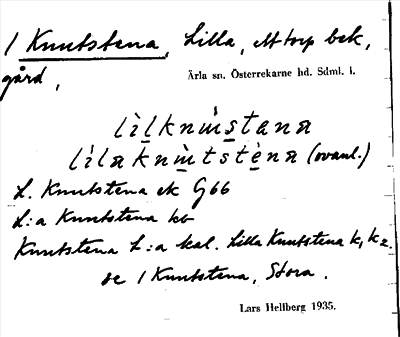 1 Knutstena, Lilla, ett torp bek,
gård,
Ärla sn. Österrekarne hd. Sdml. l.
lìlknùstana
lìlaknùtstèna (ovanl.)
L. Knutstena ek G66
L:a Knutstena kb
Knutstena L:a kal. Lilla Knutstena k, k2.
se 1 Knutstena, Stora.
Lars Hellberg 1935.